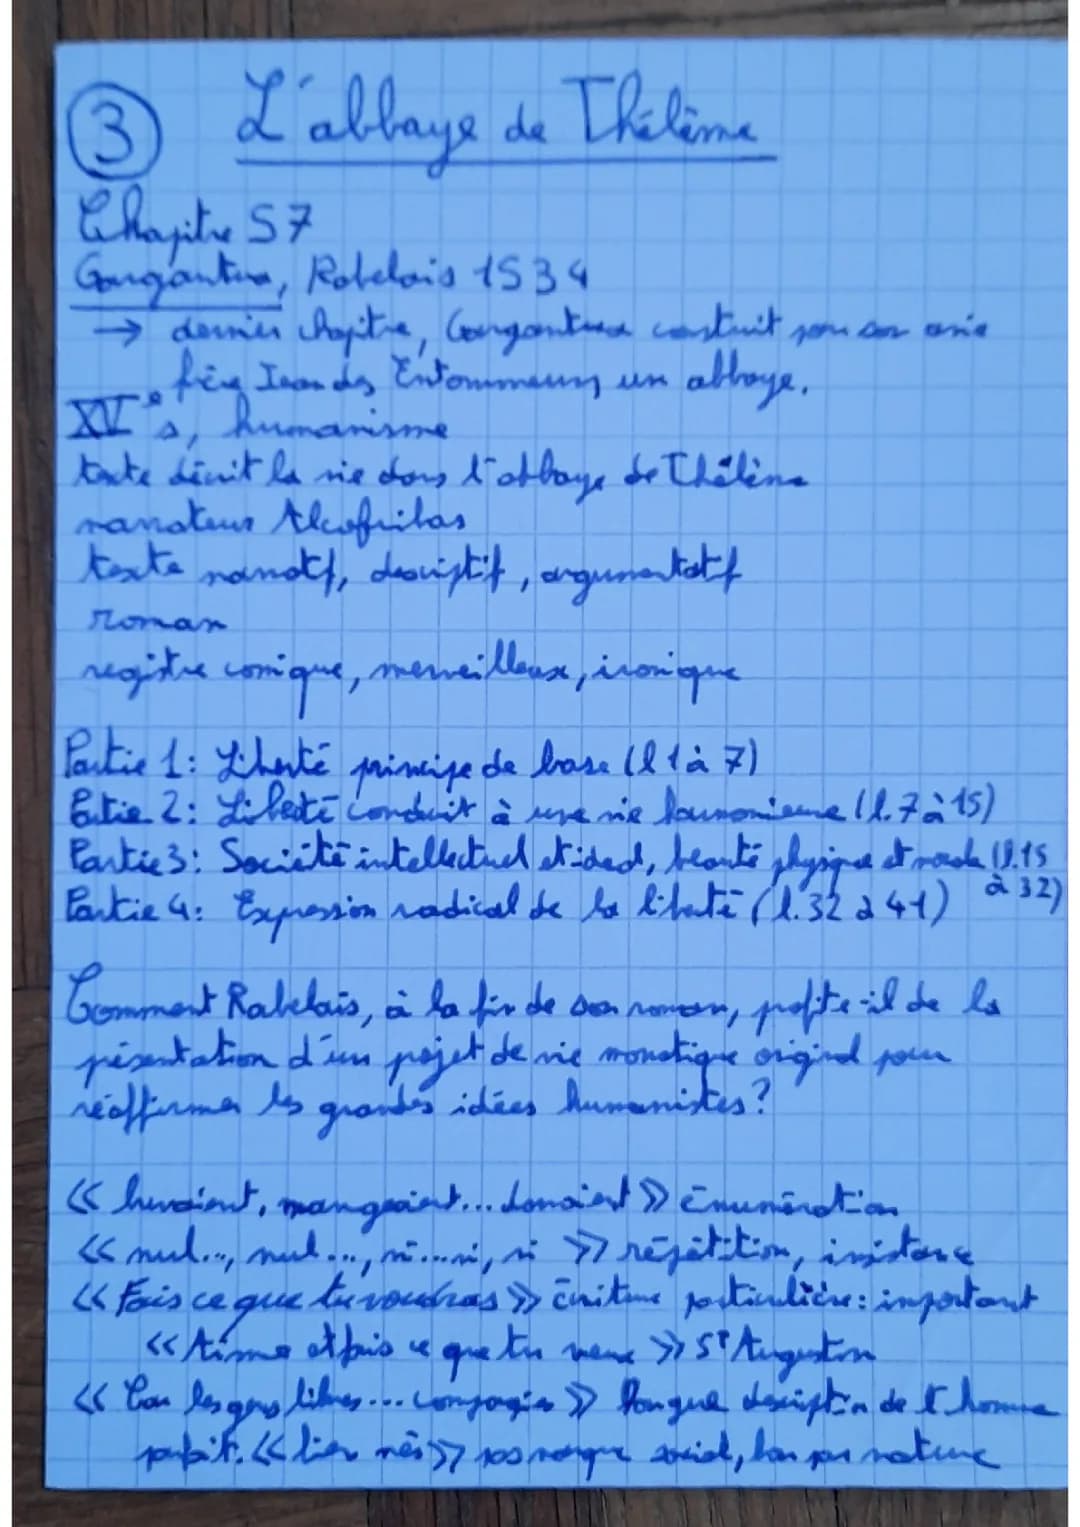 3 L'abbaye de Thélème
Chapitre 57
Gargantua, Rabelais 1534
→ dernier chapitre, Gargantua construit pour son amie
frère Jean des Entommeurs un abbaye.
XVIe s, humanisme
texte décrit la vie dans l'abbaye de Thélème
narrateur Alcofribas
texte narratif, descriptif, argumentatif
roman
registre comique, merveilleux, ironique
Partie 1: Liberté principe de base (l 1 à 7)
Partie 2: Liberté conduit à une vie harmonieuse (l. 7 à 15)
Partie 3: Société intellectuel et idéal, beauté physique et morale (l. 15
à 32)
Partie 4: Expression radical de la liberté (l. 32 à 41)
Comment Rabelais, à la fin de son roman, profite-il de la
présentation d'un projet de vie monatique original pour
réaffirmer les grandes idées humanistes?
<< buvaient, mangeaient... dormaient >> énumération
<< nul..., nul..., ni...ni, ni >> répétition, insistance
<< Fais ce que tu voudras >> écriture particulière: important
<< Aime et fais ce que tu veux >> St Augustin
<< Car les gens libres... compagnies >> longue description de l'homme
parfait. << bien nés >> pas marque social, bon par nature